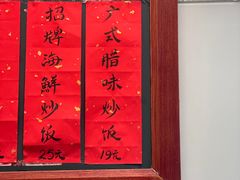 招牌海鮮炒饭
25元
广式腊味炒饭
19元